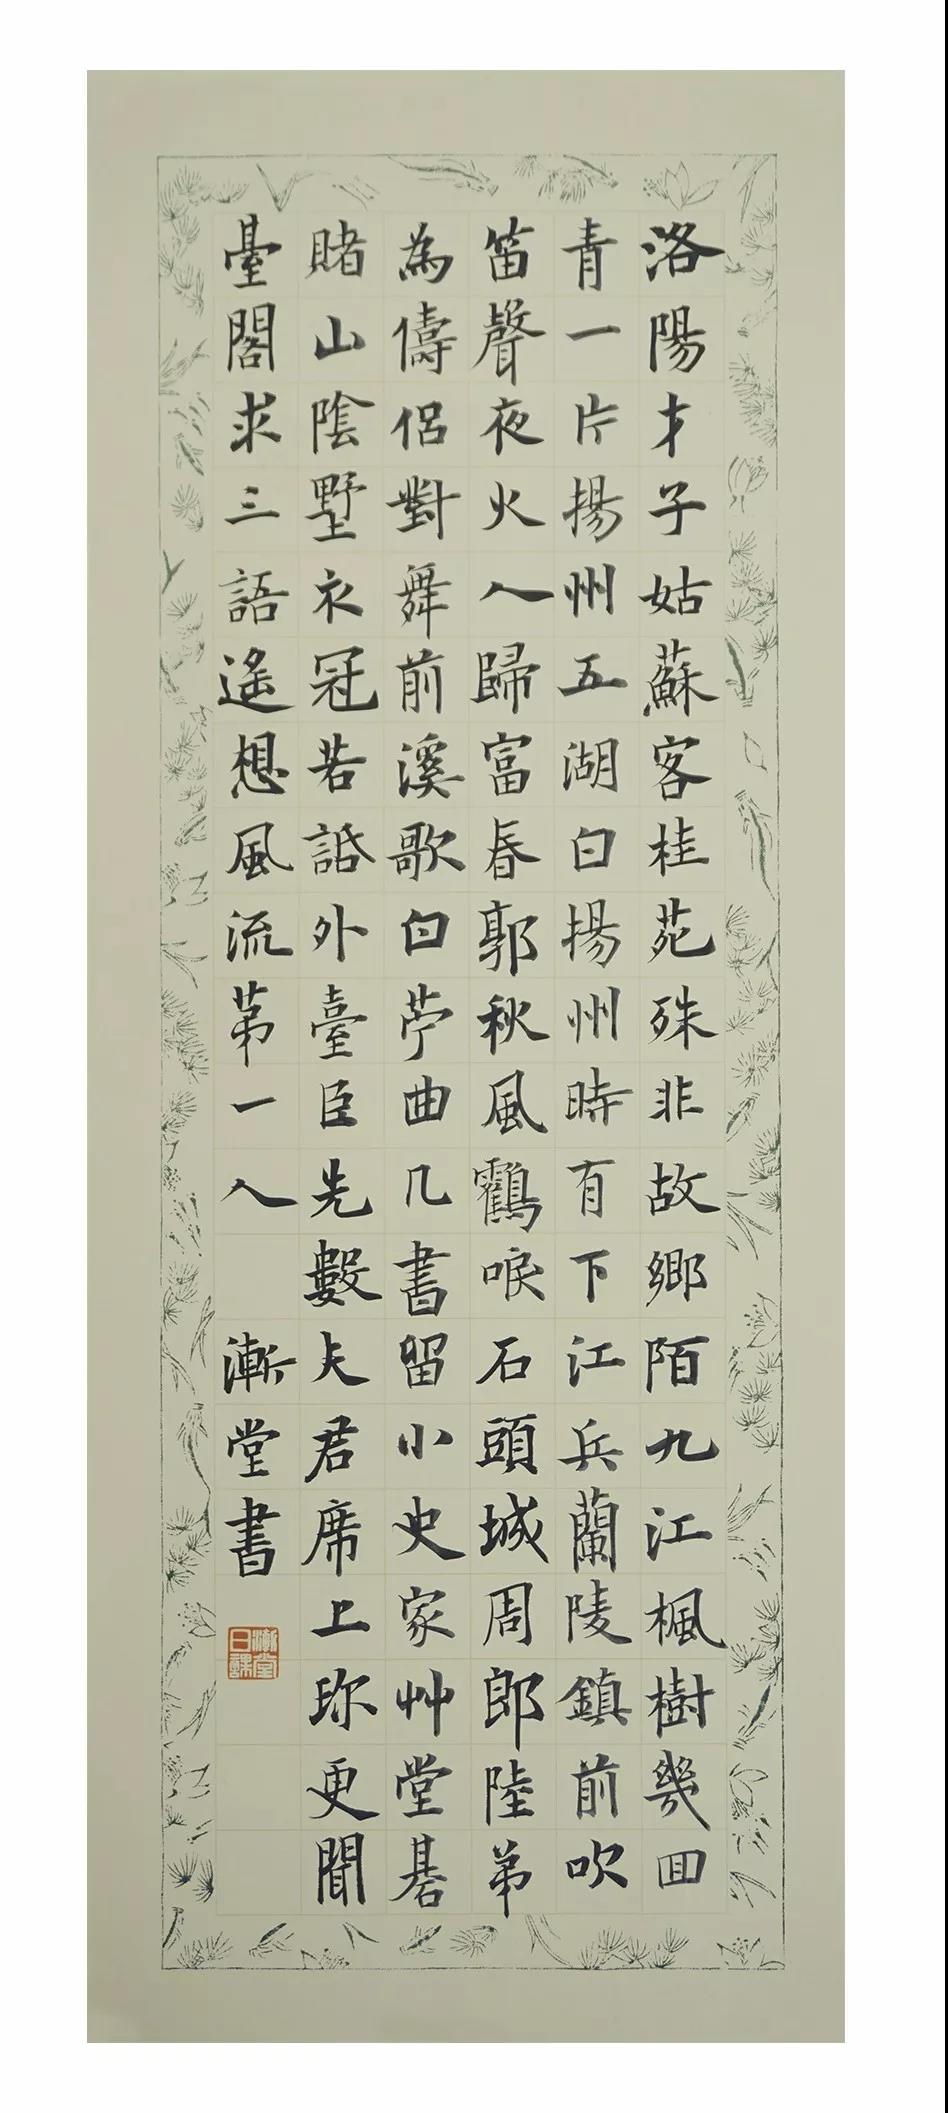 洛陽才子姑蘇客桂苑殊非故鄉陌九江楓樹幾回
青一片揚州五湖白揚州時有下江兵蘭陵鎮前吹
笛聲夜火人歸富春郭秋風鶴唳石頭城周郎陸弟
為儔侶對舞前溪歌白苧曲几書留小史家艸堂碁
賭山陰墅衣冠若話外臺臣先數夫君席上珎更聞
臺閣求三語遙想風流第一人
漸堂書
漸堂日課